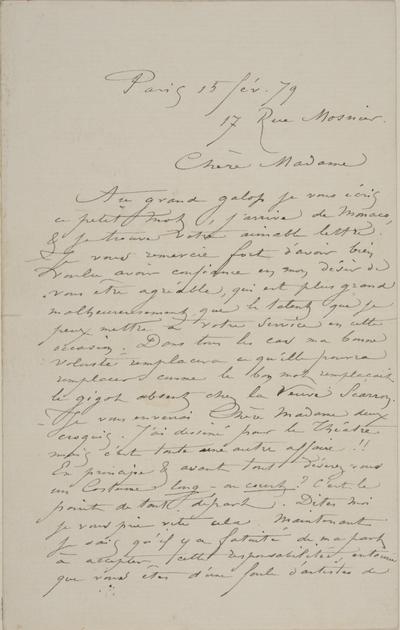 Paris 15 fév. 79
17 Rue Mosnier.
Chère Madame
Au grand galop je vous écris
ce petit mot, j'arrive de Monaco,
& je trouve votre aimable lettre.
Je vous remercie fort d'avoir bien
voulu avoir confiance en mon désir de
vous être agréable, qui est plus grand
malheureusement que le talent que je
peux mettre à votre service en cette
occasion. Dans tous les cas ma bonne
volonté remplacera ce qu'elle pourra
remplacer comme le bon mot remplaçait
le gigot absent chez la Veuve Scarron.
Je vous enverrai Chère Madame deux
croquis. J'ai dessiné pour le Théâtre
mais c'est toute une autre affaire !!
En principe & avant tout désirez vous
un Costume long - ou court? C'est le
point de tout départ. Dites moi
je vous prie vite cela. Maintenant
je sais qu'il y a fatuité de ma part
à accepter cette responsabilité, entourée
que vous êtes d'une foule d'artistes de